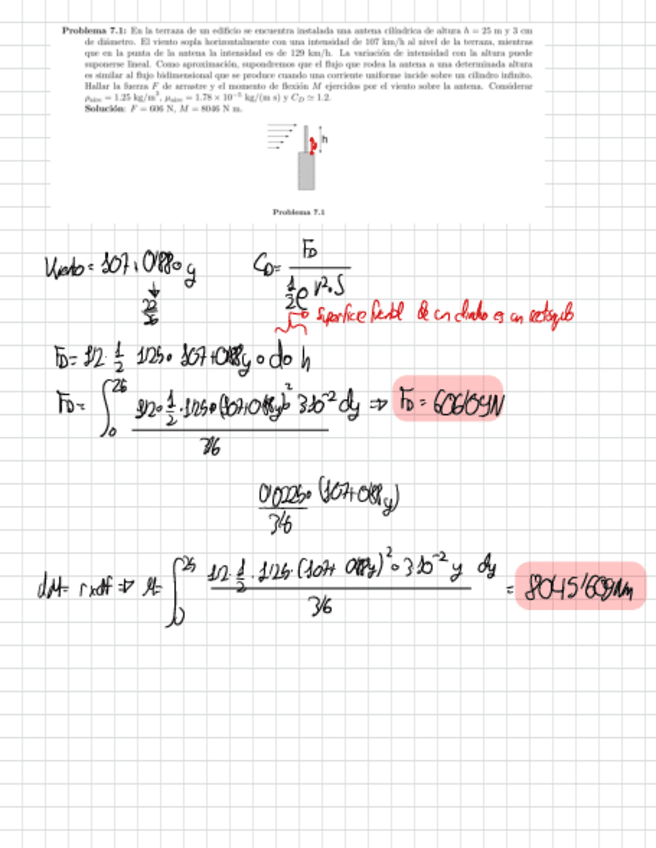 Problema 7.1: En la terraza de un edificio se encuentra instalada una antena cilíndrica de altura h = 25 m y 3 cm
de diámetro. El viento sopla horizontalmente con una intensidad de 107 km/h al nivel de la terraza, mientras
que en la punta de la antena la intensidad es de 129 km/h. La variación de intensidad con la altura puede
suponerse lineal. Como aproximación, supondremos que el flujo que rodea la antena a una determinada altura
es similar al flujo bidimensional que se produce cuando una corriente uniforme incide sobre un cilindro infinito.
Hallar la fuerza F de arrastre y el momento de flexión M ejercidos por el viento sobre la antena. Considerar
ρaire = 1.25 kg/m³, μaire = 1.78 × 10⁻⁵ kg/(m s) y C_D ≃ 1.2.
Solución: F = 606 N, M = 8046 N m.
h
Problema 7.1
Viento = 107 + 0'88 · y
C_D = F_D / ½ρ v² · S
Superficie frontal de un cilindro es un rectángulo
F_D = 1'2 · ½ · 1'25 · 107+0'88y · d · h
F_D = ∫₀²⁵ 1'2 · ½ · 1'25 · (107+0'88y)² · 3·10⁻² dy / 3'6 ⇒ F_D = 606'09N
0'0225 · (107+0'88y) / 3'6
dM = r×dF ⇒ M = ∫₀²⁵ 1'2 · ½ · 1'25 · (107+ 0'88y)² · 3·10⁻² y dy / 3'6 = 8045'609Nm